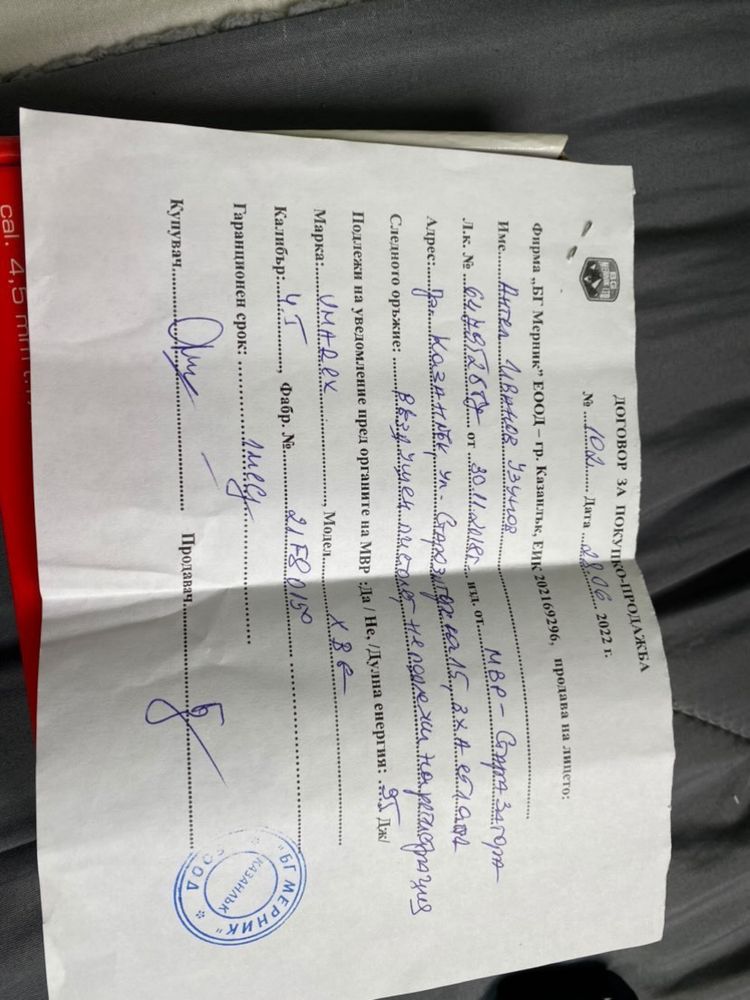 ДОГОВОР ЗА ПОКУПКО-ПРОДАЖБА
№ ...102... Дата ...28.06... 2022 г.
Фирма „БГ Мерник” ЕООД – гр. Казанлък, ЕИК 202169296, продава на лицето:
Име... Ангел Иванов Узунов
Л.к. № ... от ...30.11.2018г... изд. от... МВР – Стара Загора
Адрес:... гр. Казанлък, ул.
Следното оръжие: ... въздушен пистолет, не подлежи на регистрация
Подлежи на уведомление пред органите на МВР :Да / Не. /Дулна енергия: ... Дж/
Марка:... UMAREX ..., Модел...
Калибър:... 4.5 ..., Фабр. № ... 21F80150
Гаранционен срок: ...
Купувач... Продавач...
"БГ МЕРНИК" ЕООД
КАЗАНЛЪК
cal. 4,5 mm